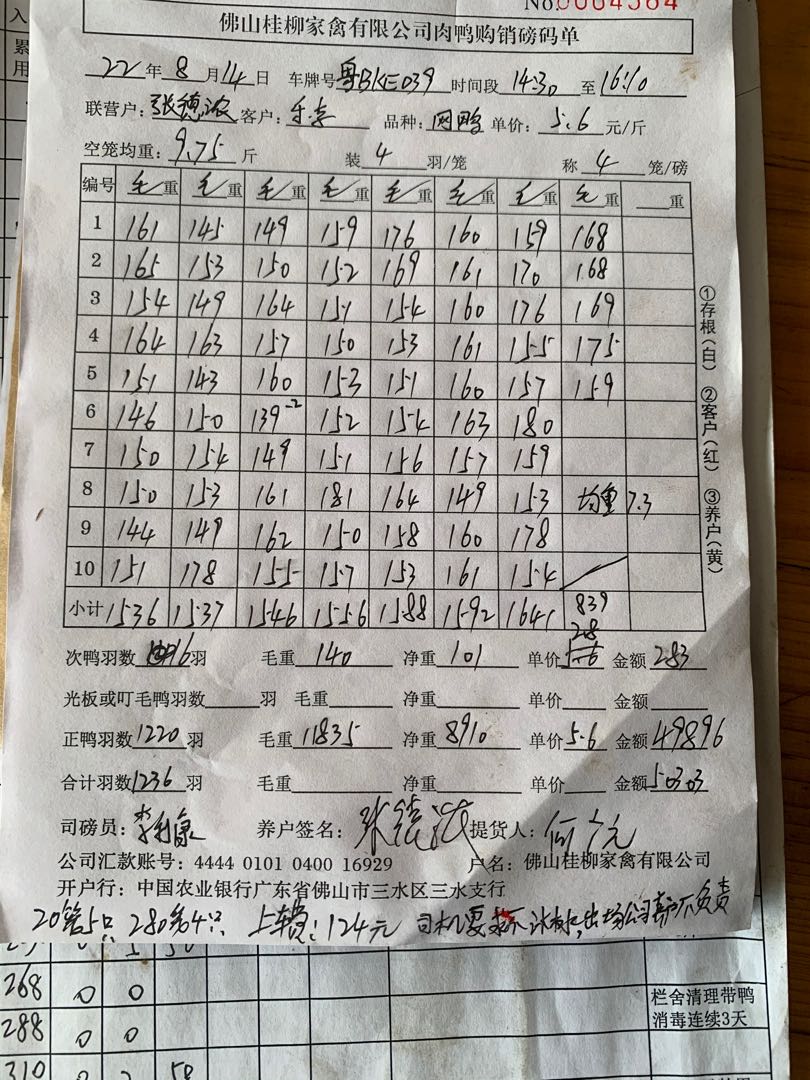 No.0064564
佛山桂柳家禽有限公司肉鸭购销磅码单
22年8月14日 车牌号粤BKE039 时间段14:30至16:10
联营户:张德浓 客户:乐季 品种:网鸭 单价:5.6元/斤
空笼均重:9.75斤 装4羽/笼 称4笼/磅
编号 毛重 毛重 毛重 毛重 毛重 毛重 毛重 毛重 重
1 161 145 149 159 176 160 159 168
2 165 153 150 152 169 161 170 168
3 154 149 164 151 154 160 176 169
4 164 163 157 150 153 161 155 175
5 151 143 160 153 151 160 157 159
6 146 150 139-2 152 154 163 180
7 150 154 149 151 156 157 159
8 150 153 161 181 164 149 153 均重7.3
9 144 149 162 150 158 160 178
10 151 178 155 157 153 161 154
小计 1536 1537 1546 1556 1588 1592 1641 839
①存根(白) ②客户(红) ③养户(黄)
2.8
次鸭羽数16羽 毛重140 净重101 单价 金额283
光板或叮毛鸭羽数羽 毛重 净重 单价 金额
正鸭羽数1220羽 毛重11835 净重8910 单价5.6 金额49896
合计羽数1236羽 毛重 净重 单价 金额50303
司磅员:李利康 养户签名:张德浓 提货人:何广元
公司汇款账号:4444 0101 0400 16929 户名:佛山桂柳家禽有限公司
开户行:中国农业银行广东省佛山市三水区三水支行
20笼5只 280笼4只 上车费:124元 司机要求不冰树,出场公司养户不负责
268 0 0
288 0 0
310 0 2 58
栏舍清理带鸭
消毒连续3天